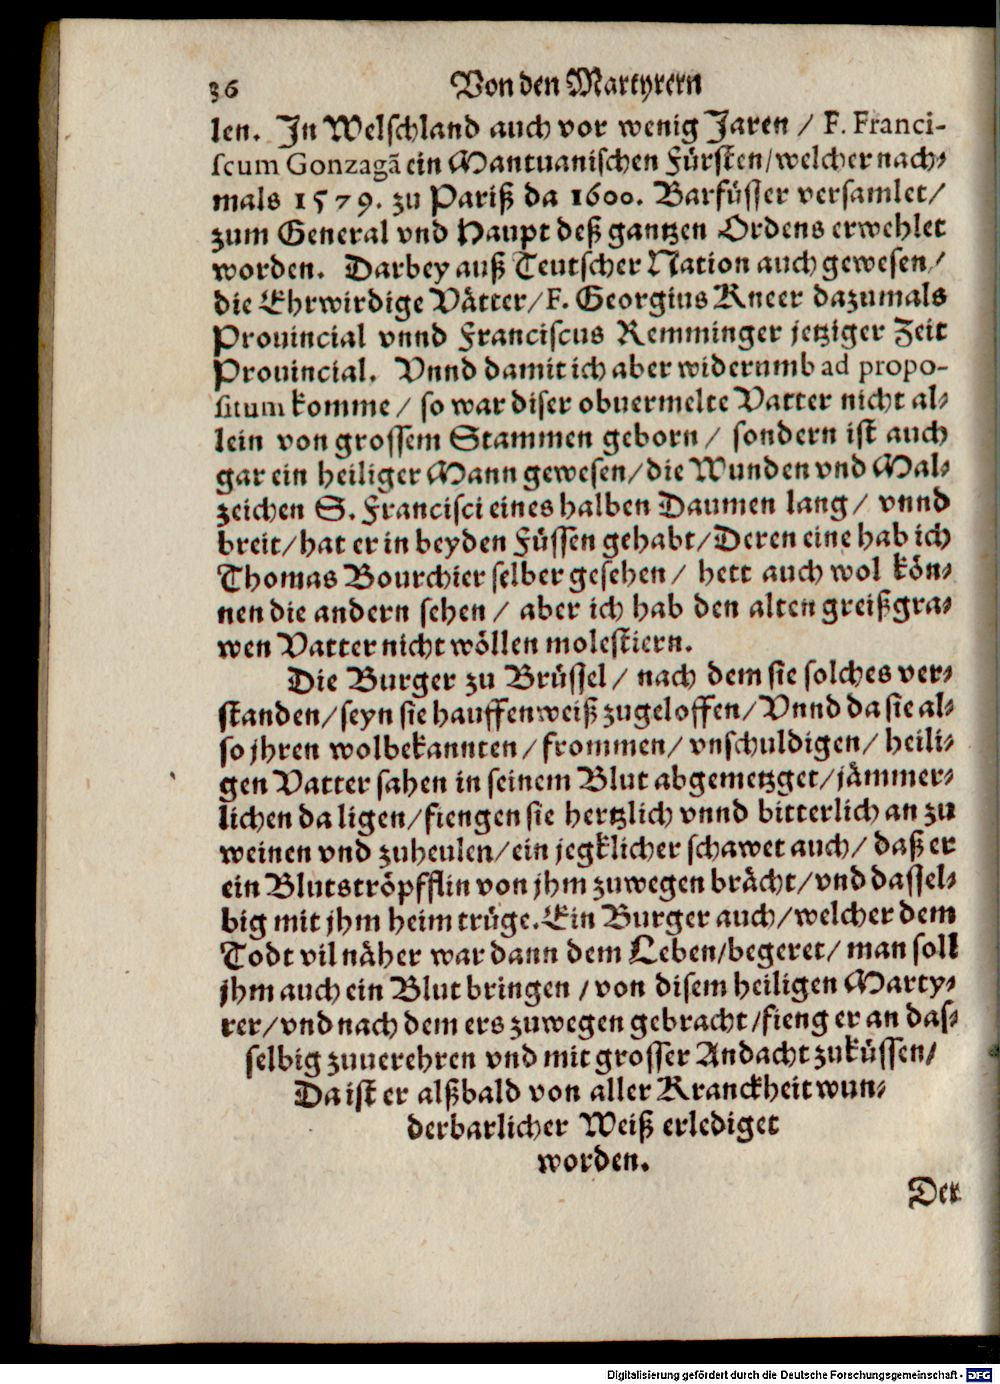 36 Von den Martyrern
len. Jn Welschland auch vor wenig Jaren / F. Franci-
scum Gonzagã ein Mantuanischen Fürsten/welcher nach-
mals 1579. zu Pariß da 1600. Barfüsser versamlet/
zum General vnd Haupt deß gantzen Ordens erwehlet
worden. Darbey auß Teutscher Nation auch gewesen/
die Ehrwirdige Vätter/F. Georgius Kneer dazumals
Prouincial vnnd Franciscus Remminger jetziger Zeit
Prouincial. Vnnd damit ich aber widerumb ad propo-
situm komme / so war diser obuermelte Vatter nicht al-
lein von grossem Stammen geborn / sondern ist auch
gar ein heiliger Mann gewesen/die Wunden vnd Mal-
zeichen S. Francisci eines halben Daumen lang / vnnd
breit/hat er in beyden Füssen gehabt/Deren eine hab ich
Thomas Bourchier selber gesehen / hett auch wol kön-
nen die andern sehen / aber ich hab den alten greißgra-
wen Vatter nicht wöllen molestiern.
Die Burger zu Brüssel / nach dem sie solches ver-
standen/seyn sie hauffenweiß zugeloffen/Vnnd da sie al-
so jhren wolbekannten/frommen/vnschuldigen/heili-
gen Vatter sahen in seinem Blut abgemetzget/jämmer-
lichen da ligen/fiengen sie hertzlich vnnd bitterlich an zu
weinen vnd zuheulen/ein jegklicher schawet auch/daß er
ein Blutströpfflin von jhm zuwegen brächt/vnd dassel-
big mit jhm heim trüge. Ein Burger auch/welcher dem
Todt vil näher war dann dem Leben/begeret/man soll
jhm auch ein Blut bringen / von disem heiligen Marty-
rer/vnd nach dem ers zuwegen gebracht/fieng er an das-
selbig zuuerehren vnd mit grosser Andacht zuküssen/
Da ist er alßbald von aller Kranckheit wun-
derbarlicher Weiß erlediget
worden.
Der
Digitalisierung gefördert durch die Deutsche Forschungsgemeinschaft - DFG